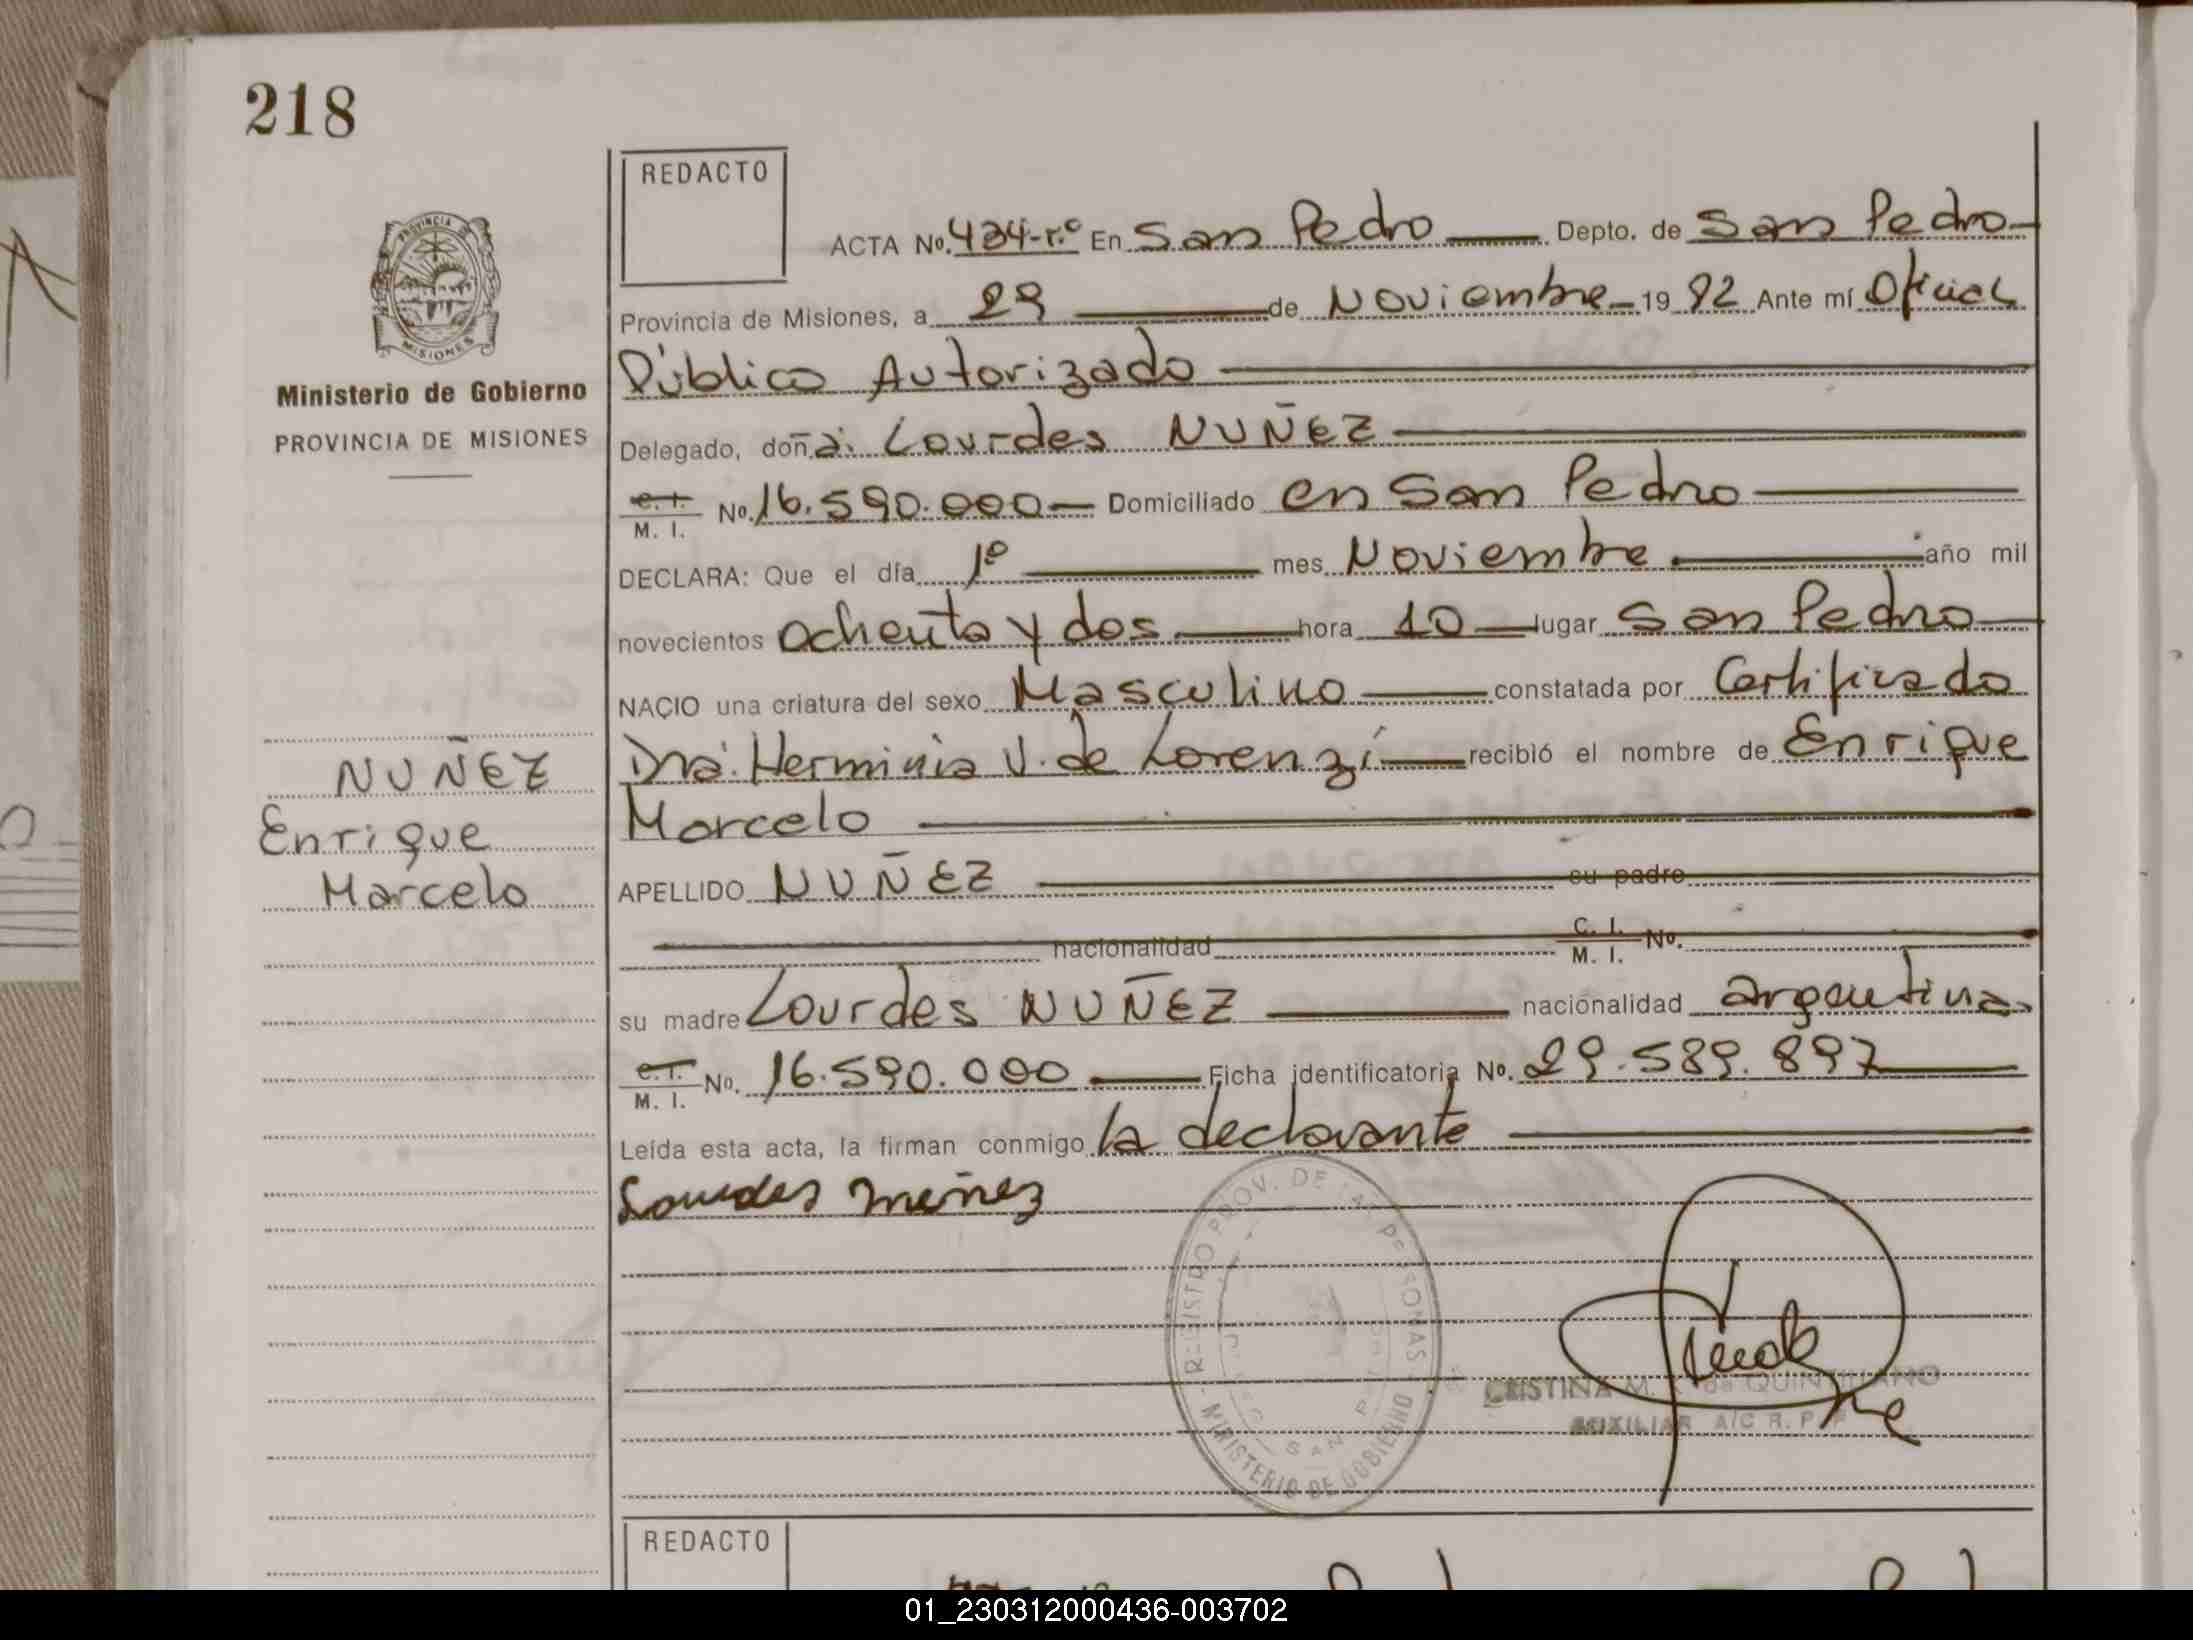 218
REDACTO
PROVINCIA DE
MISIONES
Ministerio de Gobierno
PROVINCIA DE MISIONES
ACTA No. 434-r.º En San Pedro Depto. de San Pedro
Provincia de Misiones, a 29 de Noviembre 19 82 Ante mí Oficial
Público Autorizado
Delegado, doña. Lourdes NUÑEZ
C. I.
M. I. No. 16.590.000 Domiciliado en San Pedro
DECLARA: Que el día 1º mes Noviembre año mil
novecientos ochenta y dos hora 10 lugar San Pedro
NACIO una criatura del sexo Masculino constatada por Certificado
Dra. Herminia V. de Lorenzi recibió el nombre de Enrique
Marcelo
APELLIDO NUÑEZ su padre
nacionalidad C. I. M. I. No.
su madre Lourdes NUÑEZ nacionalidad argentina
C. I.
M. I. No. 16.590.000 Ficha identificatoria No. 29.589.897
Leída esta acta, la firman conmigo la declarante
NUÑEZ
Enrique
Marcelo
Lourdes Nuñez
REGISTRO PROV. DE LAS PERSONAS
MINISTERIO DE GOBIERNO
SAN
CRISTINA M. de QUINTILIANO
AUXILIAR A/C R. P. P
REDACTO
01_230312000436-003702